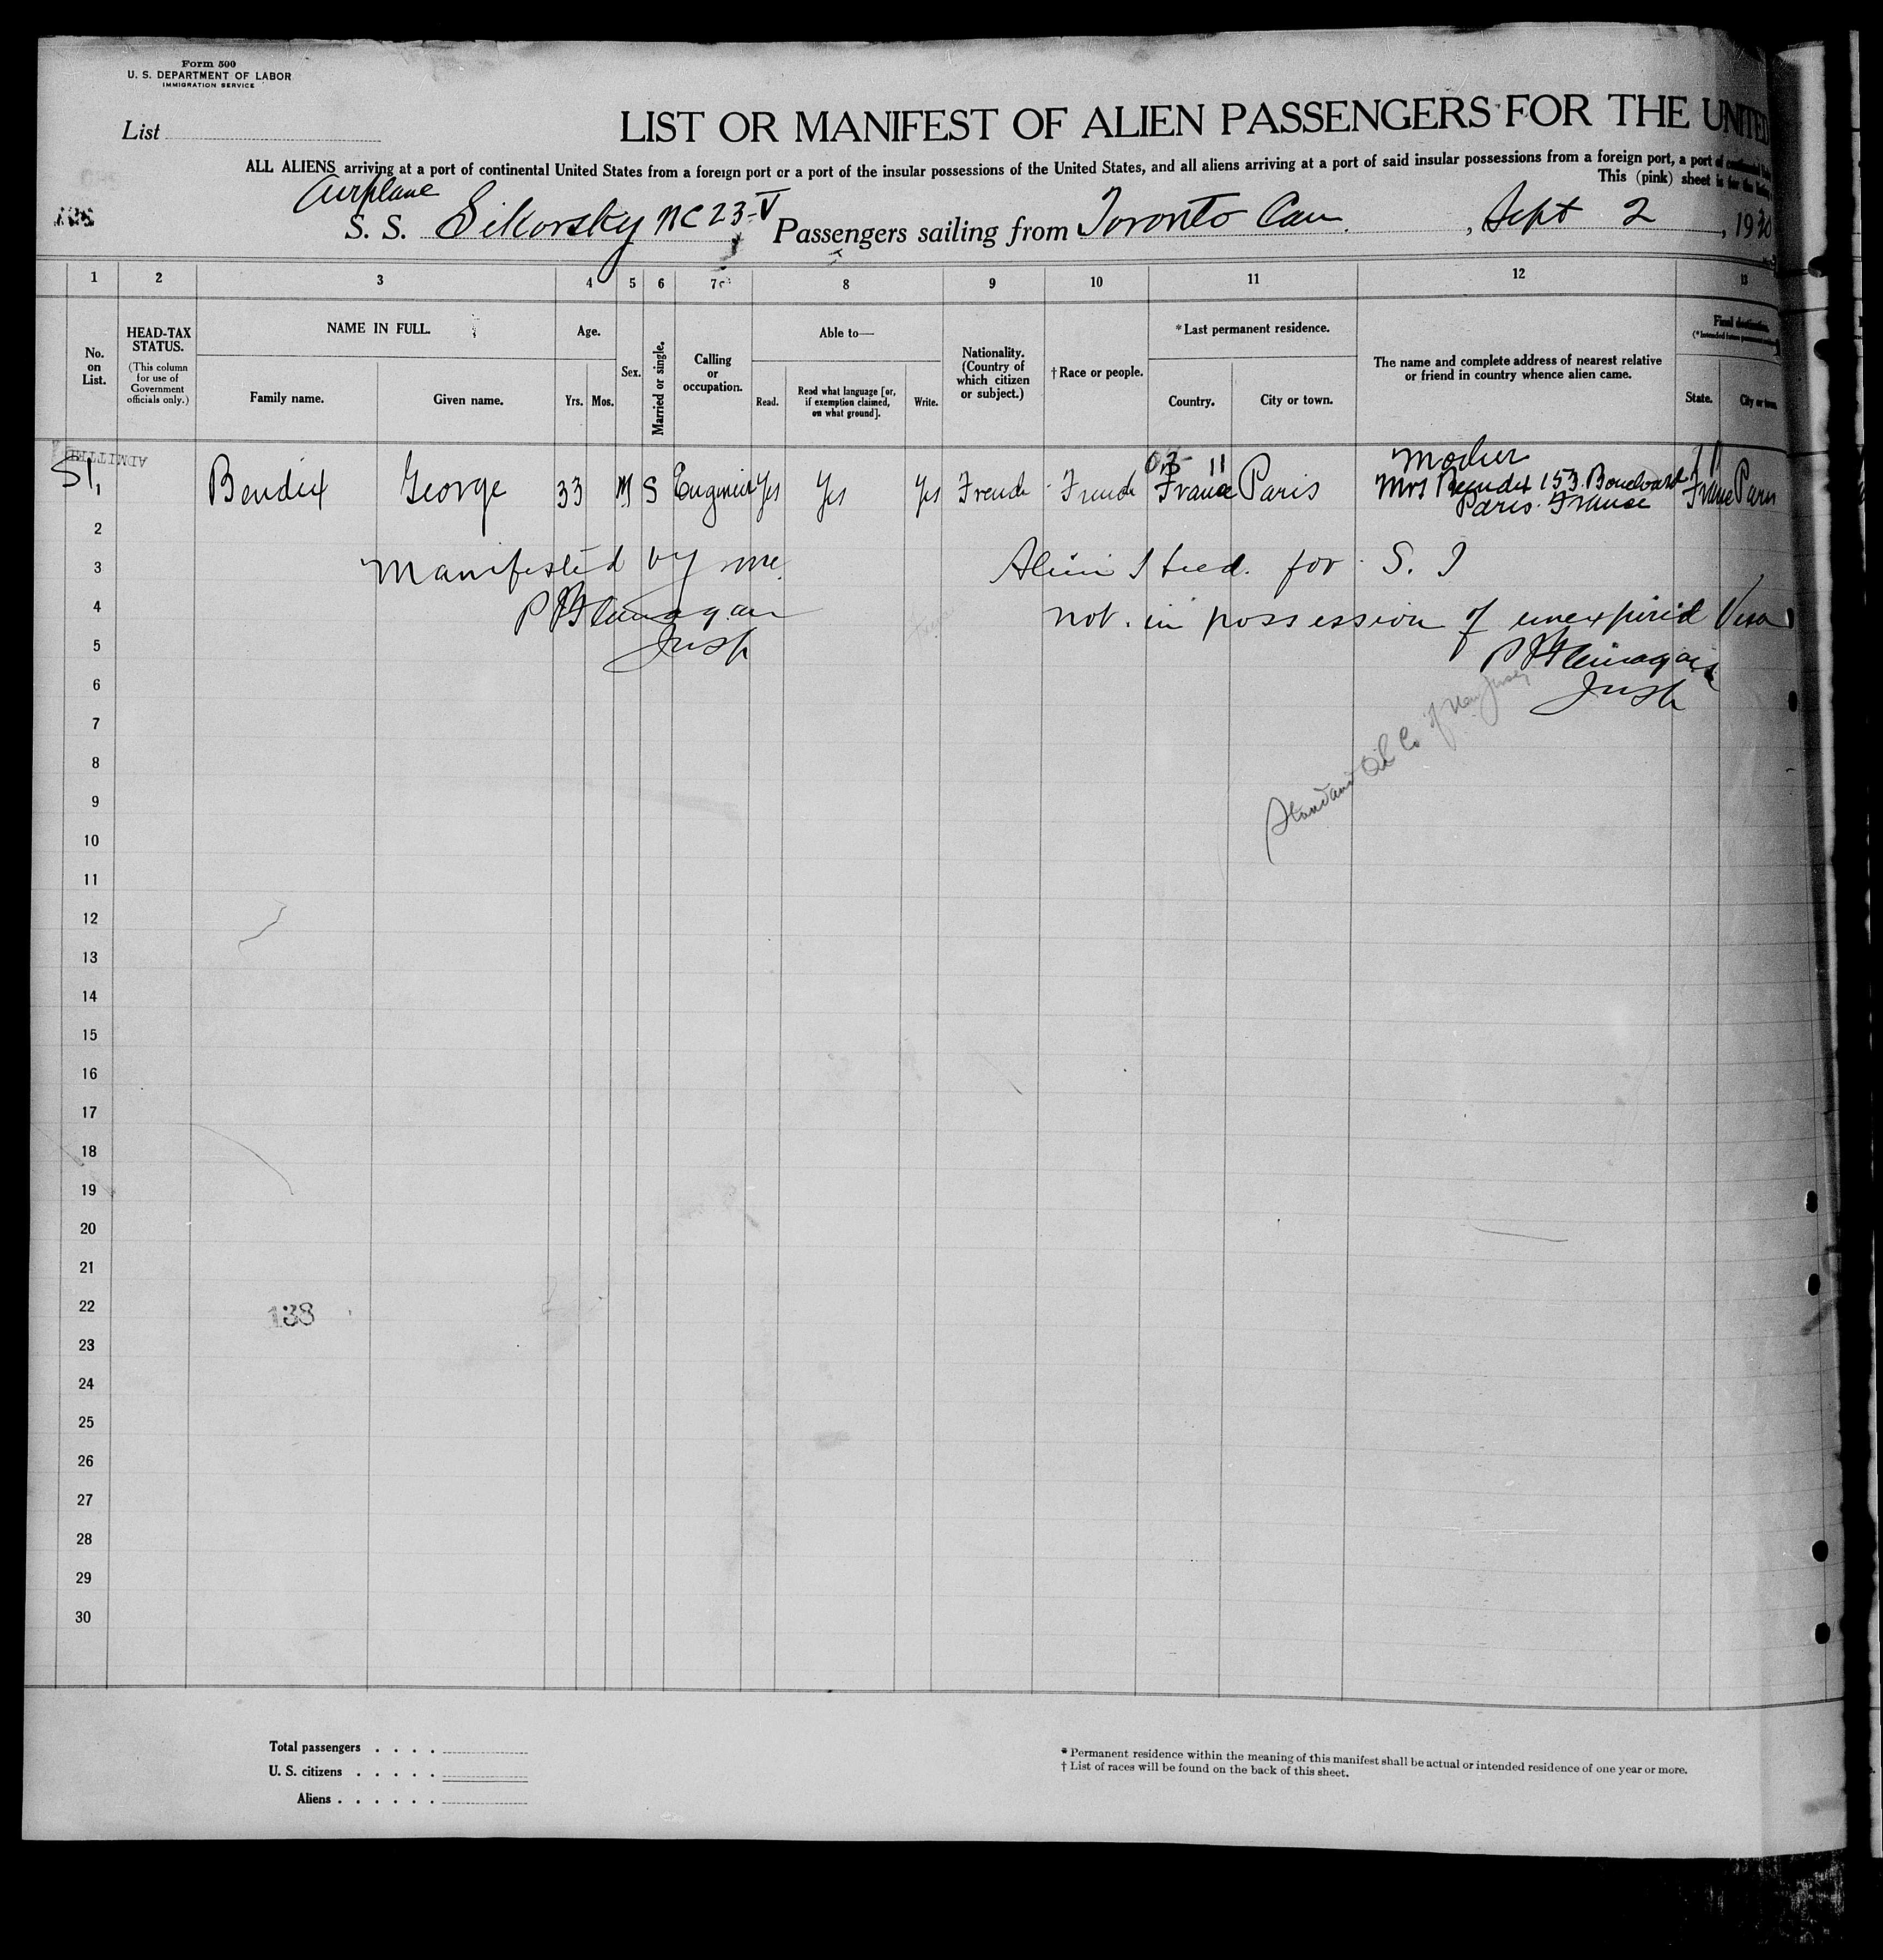 Form 500
U. S. DEPARTMENT OF LABOR
IMMIGRATION SERVICE
List
LIST OR MANIFEST OF ALIEN PASSENGERS FOR THE UNITED
ALL ALIENS arriving at a port of continental United States from a foreign port or a port of the insular possessions of the United States, and all aliens arriving at a port of said insular possessions from a foreign port, a port of continental
This (pink) sheet is for the listing
Airplane
S. S. Sikorsky NC 23-V Passengers sailing from Toronto Can. , Sept 2 , 1930
1 2 3 4 5 6 7 8 9 10 11 12 13
No. on List.
HEAD-TAX STATUS.
(This column for use of Government officials only.)
NAME IN FULL.
Family name. Given name.
Age.
Yrs. Mos.
Sex.
Married or single.
Calling or occupation.
Able to—
Read. Read what language [or, if exemption claimed, on what ground]. Write.
Nationality. (Country of which citizen or subject.)
† Race or people.
* Last permanent residence.
Country. City or town.
The name and complete address of nearest relative or friend in country whence alien came.
Final destination.
State. City or town.
ADMITTED
Mother
1 Bendix George 33 M S Engineer Yes Yes Yes French French France Paris Mrs Bendix 153 Boulevard France Paris
Paris France
2
3 Manifested by me Alien held for S. I
4 P Flanagan not in possession of unexpired Visa
5 Insp P Flanagan
6 Insp
7
Standard Oil Co of New Jersey
8
9
10
11
12
13
14
15
16
17
18
19
20
21
22 138
23
24
25
26
27
28
29
30
Total passengers . . . .
U. S. citizens . . . . .
Aliens . . . . . .
* Permanent residence within the meaning of this manifest shall be actual or intended residence of one year or more.
† List of races will be found on the back of this sheet.